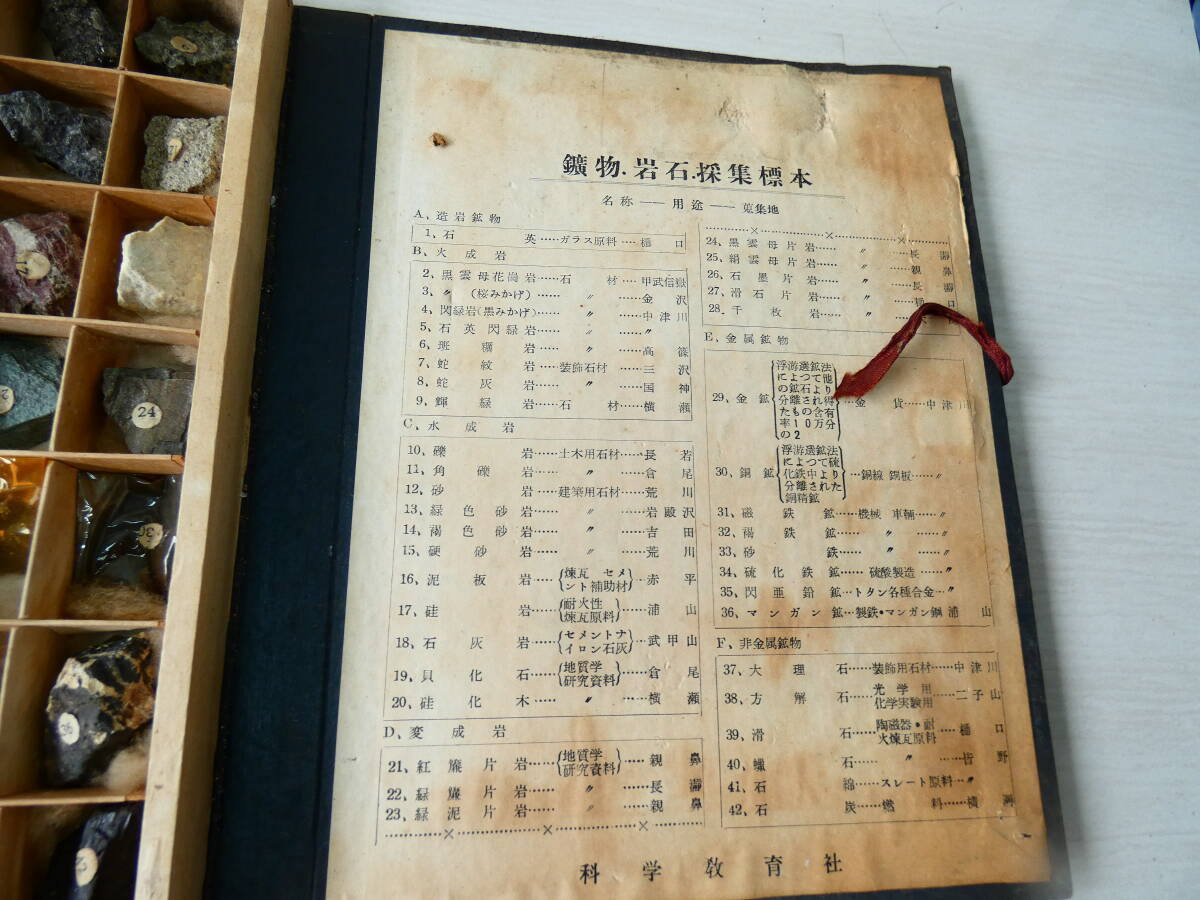 鑛物.岩石.採集標本
名称 ── 用途 ── 蒐集地
A、造岩鉱物
1、石英‥‥ガラス原料‥‥樋口
B、火成岩
2、黒雲母花崗岩‥‥石材‥‥甲武信嶽
3、〃（桜みかげ）‥‥〃‥‥金沢
4、閃緑岩(黒みかげ)‥‥〃‥‥中津川
5、石英閃緑岩‥‥〃‥‥〃
6、斑糲岩‥‥〃‥‥高篠
7、蛇紋岩‥‥装飾石材‥‥三沢
8、蛇灰岩‥‥〃‥‥国神
9、輝緑岩‥‥石材‥‥横瀬
C、水成岩
10、礫岩‥‥土木用石材‥‥長若
11、角礫岩‥‥〃‥‥倉尾
12、砂岩‥‥建築用石材‥‥荒川
13、緑色砂岩‥‥〃‥‥岩殿沢
14、褐色砂岩‥‥〃‥‥吉田
15、硬砂岩‥‥〃‥‥荒川
16、泥板岩‥‥{煉瓦 セメント補助材}‥‥赤平
17、硅岩‥‥{耐火性煉瓦原料}‥‥浦山
18、石灰岩‥‥{セメントナイロン石灰}‥‥武甲山
19、貝化石‥‥{地質学研究資料}‥‥倉尾
20、硅化木‥‥〃‥‥横瀬
D、変成岩
21、紅簾片岩‥‥{地質学研究資料}‥‥親鼻
22、緑簾片岩‥‥〃‥‥長瀞
23、緑泥片岩‥‥〃‥‥親鼻
24、黒雲母片岩‥‥〃‥‥長瀞
25、絹雲母片岩‥‥〃‥‥親鼻
26、石墨片岩‥‥〃‥‥長瀞
27、滑石片岩‥‥〃‥‥樋口
28、千枚岩‥‥〃‥‥
E、金属鉱物
29、金鉱{浮游選鉱法によつて他の鉱石より分離され得たもの含有率10万分の2}‥‥金貨‥‥中津川
30、銅鉱{浮游選鉱法によつて硫化鉄中より分離された銅精鉱}‥‥銅線 銅板‥‥〃
31、磁鉄鉱‥‥機械 車輛‥‥〃
32、褐鉄鉱‥‥〃‥‥〃
33、砂鉄‥‥〃‥‥〃
34、硫化鉄鉱‥‥硫酸製造‥‥〃
35、閃亜鉛鉱‥‥トタン各種合金‥‥〃
36、マンガン鉱‥‥製鉄・マンガン鋼 浦山
F、非金属鉱物
37、大理石‥‥装飾用石材‥‥中津川
38、方解石‥‥光学用化学実験用‥‥二子山
39、滑石‥‥陶磁器・耐火煉瓦原料‥‥樋口
40、蠟石‥‥〃‥‥皆野
41、石綿‥‥スレート原料‥‥〃
42、石炭‥‥燃料‥‥横瀬
科学教育社
24